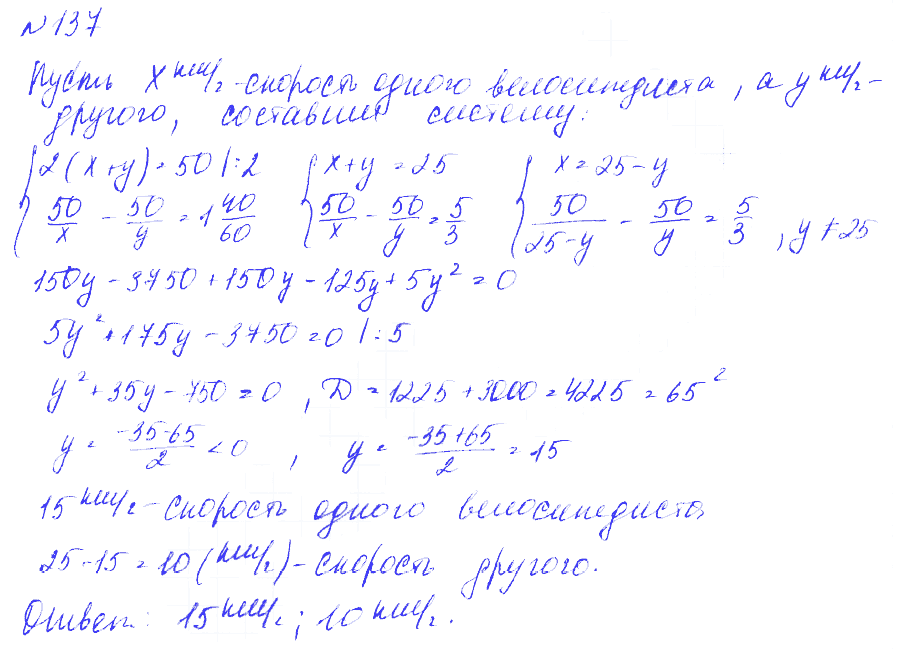 №137
Пусть x км/г - скорость одного велосипедиста, а y км/г -
другого, составим систему:
{ 2(x+y)=50 |:2 { x+y=25 { x=25-y
50/x - 50/y = 1 40/60 50/x - 50/y = 5/3 50/(25-y) - 50/y = 5/3 , y≠25
150y - 3750 + 150y - 125y + 5y² = 0
5y² + 175y - 3750 = 0 |:5
y² + 35y - 750 = 0 , D = 1225 + 3000 = 4225 = 65²
y = (-35-65)/2 < 0 , y = (-35+65)/2 = 15
15 км/г - скорость одного велосипедиста
25-15=10 (км/г) - скорость другого.
Ответ: 15 км/г; 10 км/г.